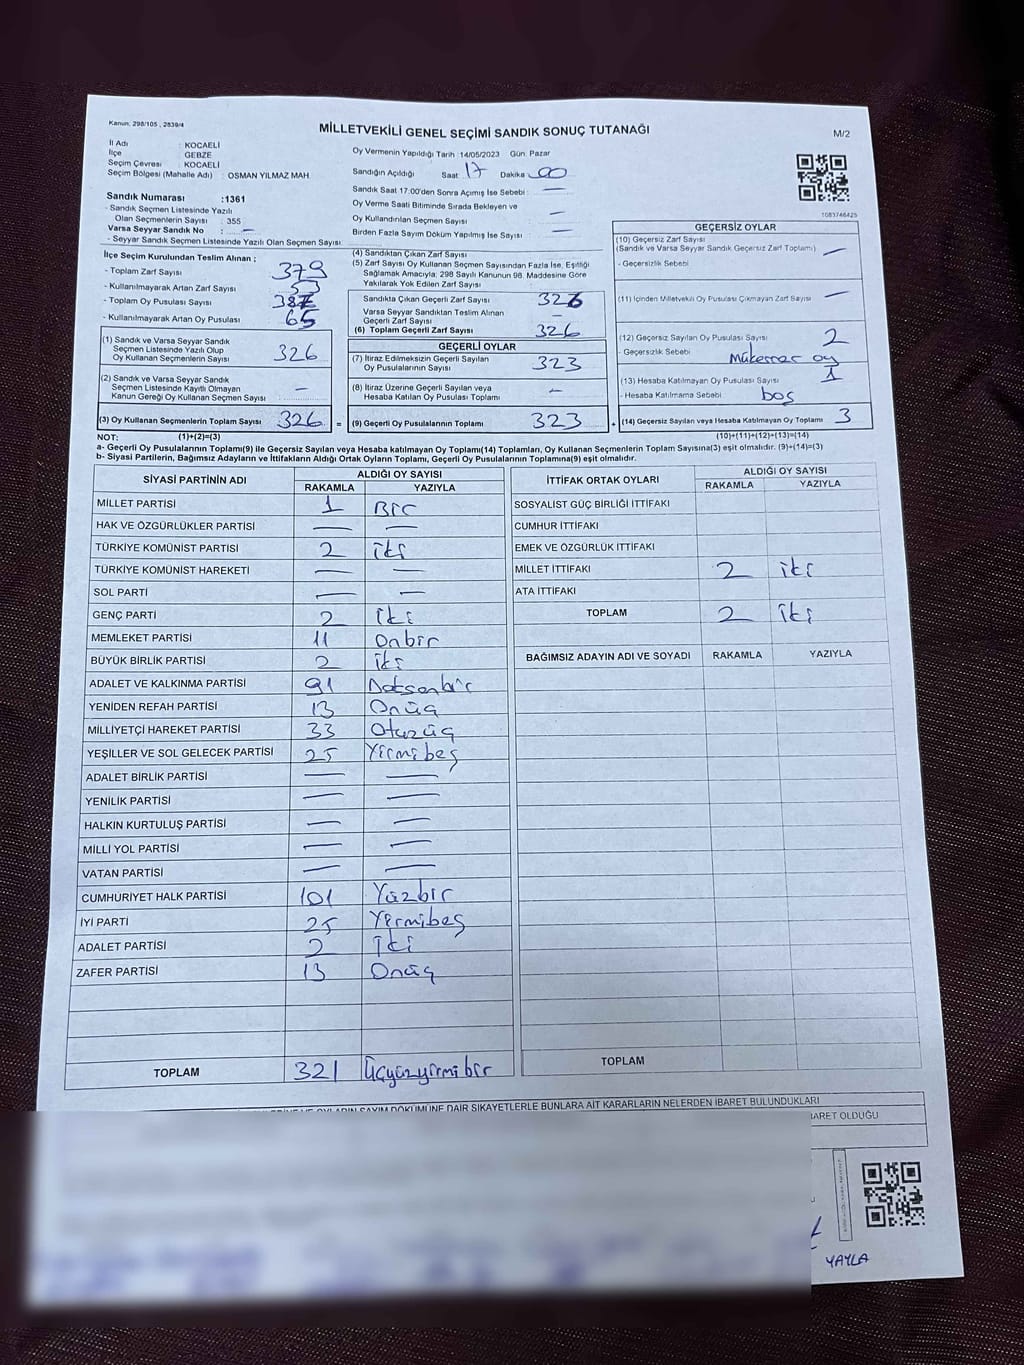 Kanun, 298/105 , 2839/4
MİLLETVEKİLİ GENEL SEÇİMİ SANDIK SONUÇ TUTANAĞI
M/2
İl Adı : KOCAELİ
İlçe GEBZE
Seçim Çevresi : KOCAELİ
Seçim Bölgesi (Mahalle Adı) : OSMAN YILMAZ MAH
Sandık Numarası :1361
- Sandık Seçmen Listesinde Yazılı
Olan Seçmenlerin Sayısı : 355
Varsa Seyyar Sandık No : —
- Seyyar Sandık Seçmen Listesinde Yazılı Olan Seçmen Sayısı
Oy Vermenin Yapıldığı Tarih :14/05/2023 Gün: Pazar
Sandığın Açıldığı Saat 17 Dakika 00
Sandık Saat 17:00'den Sonra Açımış İse Sebebi : —
Oy Verme Saati Bitiminde Sırada Bekleyen ve
Oy Kullandırılan Seçmen Sayısı : —
Birden Fazla Sayım Döküm Yapılmış İse Sayısı : —
1083746425
İlçe Seçim Kurulundan Teslim Alınan ;
- Toplam Zarf Sayısı 379
- Kullanılmayarak Artan Zarf Sayısı 53
- Toplam Oy Pusulası Sayısı
- Kullanılmayarak Artan Oy Pusulası 65
(1) Sandık ve Varsa Seyyar Sandık
Seçmen Listesinde Yazılı Olup
Oy Kullanan Seçmenlerin Sayısı 326
(2) Sandık ve Varsa Seyyar Sandık
Seçmen Listesinde Kayıtlı Olmayan
Kanun Gereği Oy Kullanan Seçmen Sayısı —
(3) Oy Kullanan Seçmenlerin Toplam Sayısı 326 =
(4) Sandıktan Çıkan Zarf Sayısı
(5) Zarf Sayısı Oy Kullanan Seçmen Sayısından Fazla İse, Eşitliği
Sağlamak Amacıyla; 298 Sayılı Kanunun 98. Maddesine Göre
Yakılarak Yok Edilen Zarf Sayısı
Sandıkta Çıkan Geçerli Zarf Sayısı 326
Varsa Seyyar Sandıktan Teslim Alınan
Geçerli Zarf Sayısı —
(6) Toplam Geçerli Zarf Sayısı 326
GEÇERLİ OYLAR
(7) İtiraz Edilmeksizin Geçerli Sayılan
Oy Pusulalarının Sayısı 323
(8) İtiraz Üzerine Geçerli Sayılan veya
Hesaba Katılan Oy Pusulası Toplamı —
(9) Geçerli Oy Pusulalarının Toplamı 323 +
GEÇERSİZ OYLAR
(10) Geçersiz Zarf Sayısı
(Sandık ve Varsa Seyyar Sandık Geçersiz Zarf Toplamı) —
- Geçersizlik Sebebi
(11) İçinden Milletvekili Oy Pusulası Çıkmayan Zarf Sayısı —
(12) Geçersiz Sayılan Oy Pusulası Sayısı 2
- Geçersizlik Sebebi Mükerrer oy
(13) Hesaba Katılmayan Oy Pusulası Sayısı 1
- Hesaba Katılmama Sebebi boş
(14) Geçersiz Sayılan veya Hesaba Katılmayan Oy Toplamı 3
NOT: (1)+(2)=(3) (10)+(11)+(12)+(13)=(14)
a- Geçerli Oy Pusulalarının Toplamı(9) ile Geçersiz Sayılan veya Hesaba Katılmayan Oy Toplamı(14) Toplamları, Oy Kullanan Seçmenlerin Toplam Sayısına(3) eşit olmalıdır. (9)+(14)=(3)
b- Siyasi Partilerin, Bağımsız Adayların ve İttifakların Aldığı Ortak Oyların Toplamı, Geçerli Oy Pusulalarının Toplamına(9) eşit olmalıdır.
SİYASİ PARTİNİN ADI ALDIĞI OY SAYISI
RAKAMLA YAZIYLA
MİLLET PARTİSİ 1 Bir
HAK VE ÖZGÜRLÜKLER PARTİSİ — —
TÜRKİYE KOMÜNİST PARTİSİ 2 iki
TÜRKİYE KOMÜNİST HAREKETİ — —
SOL PARTİ — —
GENÇ PARTİ 2 iki
MEMLEKET PARTİSİ 11 Onbir
BÜYÜK BİRLİK PARTİSİ 2 iki
ADALET VE KALKINMA PARTİSİ 91 Doksanbir
YENİDEN REFAH PARTİSİ 13 Onüç
MİLLİYETÇİ HAREKET PARTİSİ 33 Otuzüç
YEŞİLLER VE SOL GELECEK PARTİSİ 25 Yirmibeş
ADALET BİRLİK PARTİSİ — —
YENİLİK PARTİSİ — —
HALKIN KURTULUŞ PARTİSİ — —
MİLLİ YOL PARTİSİ — —
VATAN PARTİSİ — —
CUMHURİYET HALK PARTİSİ 101 Yüzbir
İYİ PARTİ 25 Yirmibeş
ADALET PARTİSİ 2 İki
ZAFER PARTİSİ 13 Onüç
TOPLAM 321 Üçyüzyirmibir
İTTİFAK ORTAK OYLARI ALDIĞI OY SAYISI
RAKAMLA YAZIYLA
SOSYALİST GÜÇ BİRLİĞİ İTTİFAKI
CUMHUR İTTİFAKI
EMEK VE ÖZGÜRLÜK İTTİFAKI
MİLLET İTTİFAKI 2 iki
ATA İTTİFAKI
TOPLAM 2 iki
BAĞIMSIZ ADAYIN ADI VE SOYADI RAKAMLA YAZIYLA
TOPLAM
OYLARIN SAYIM DÖKÜMÜNE DAİR ŞİKAYETLERLE BUNLARA AİT KARARLARIN NELERDEN İBARET BULUNDUKLARI
İBARET OLDUĞU
YAYLA